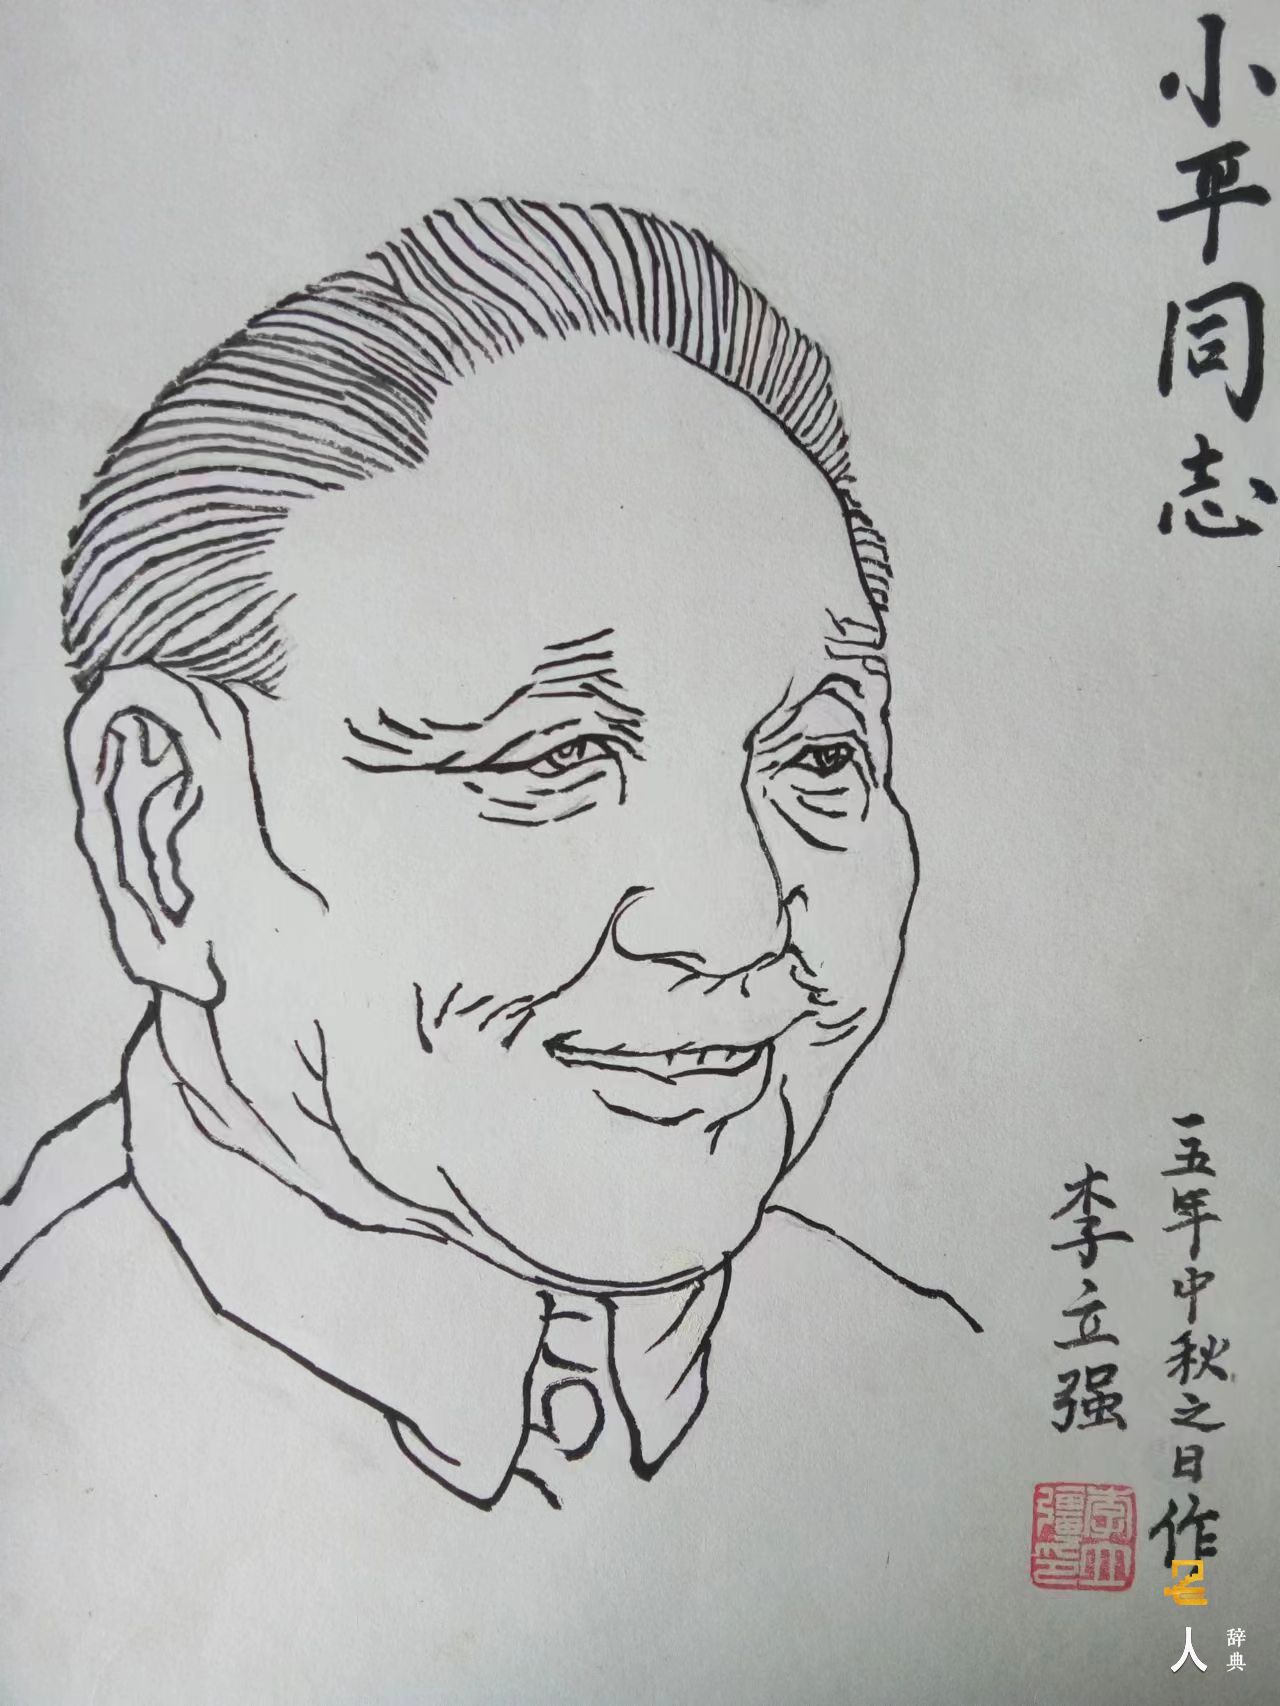 小平同志
一五年中秋之日作
李立强
李立强印
名人
辞典